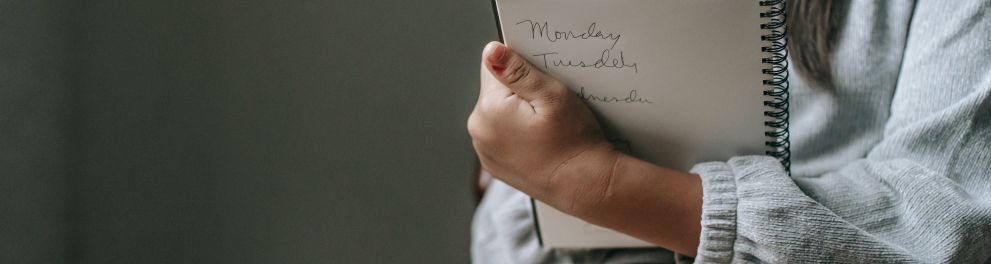 Monday
Tuesday
dnesday